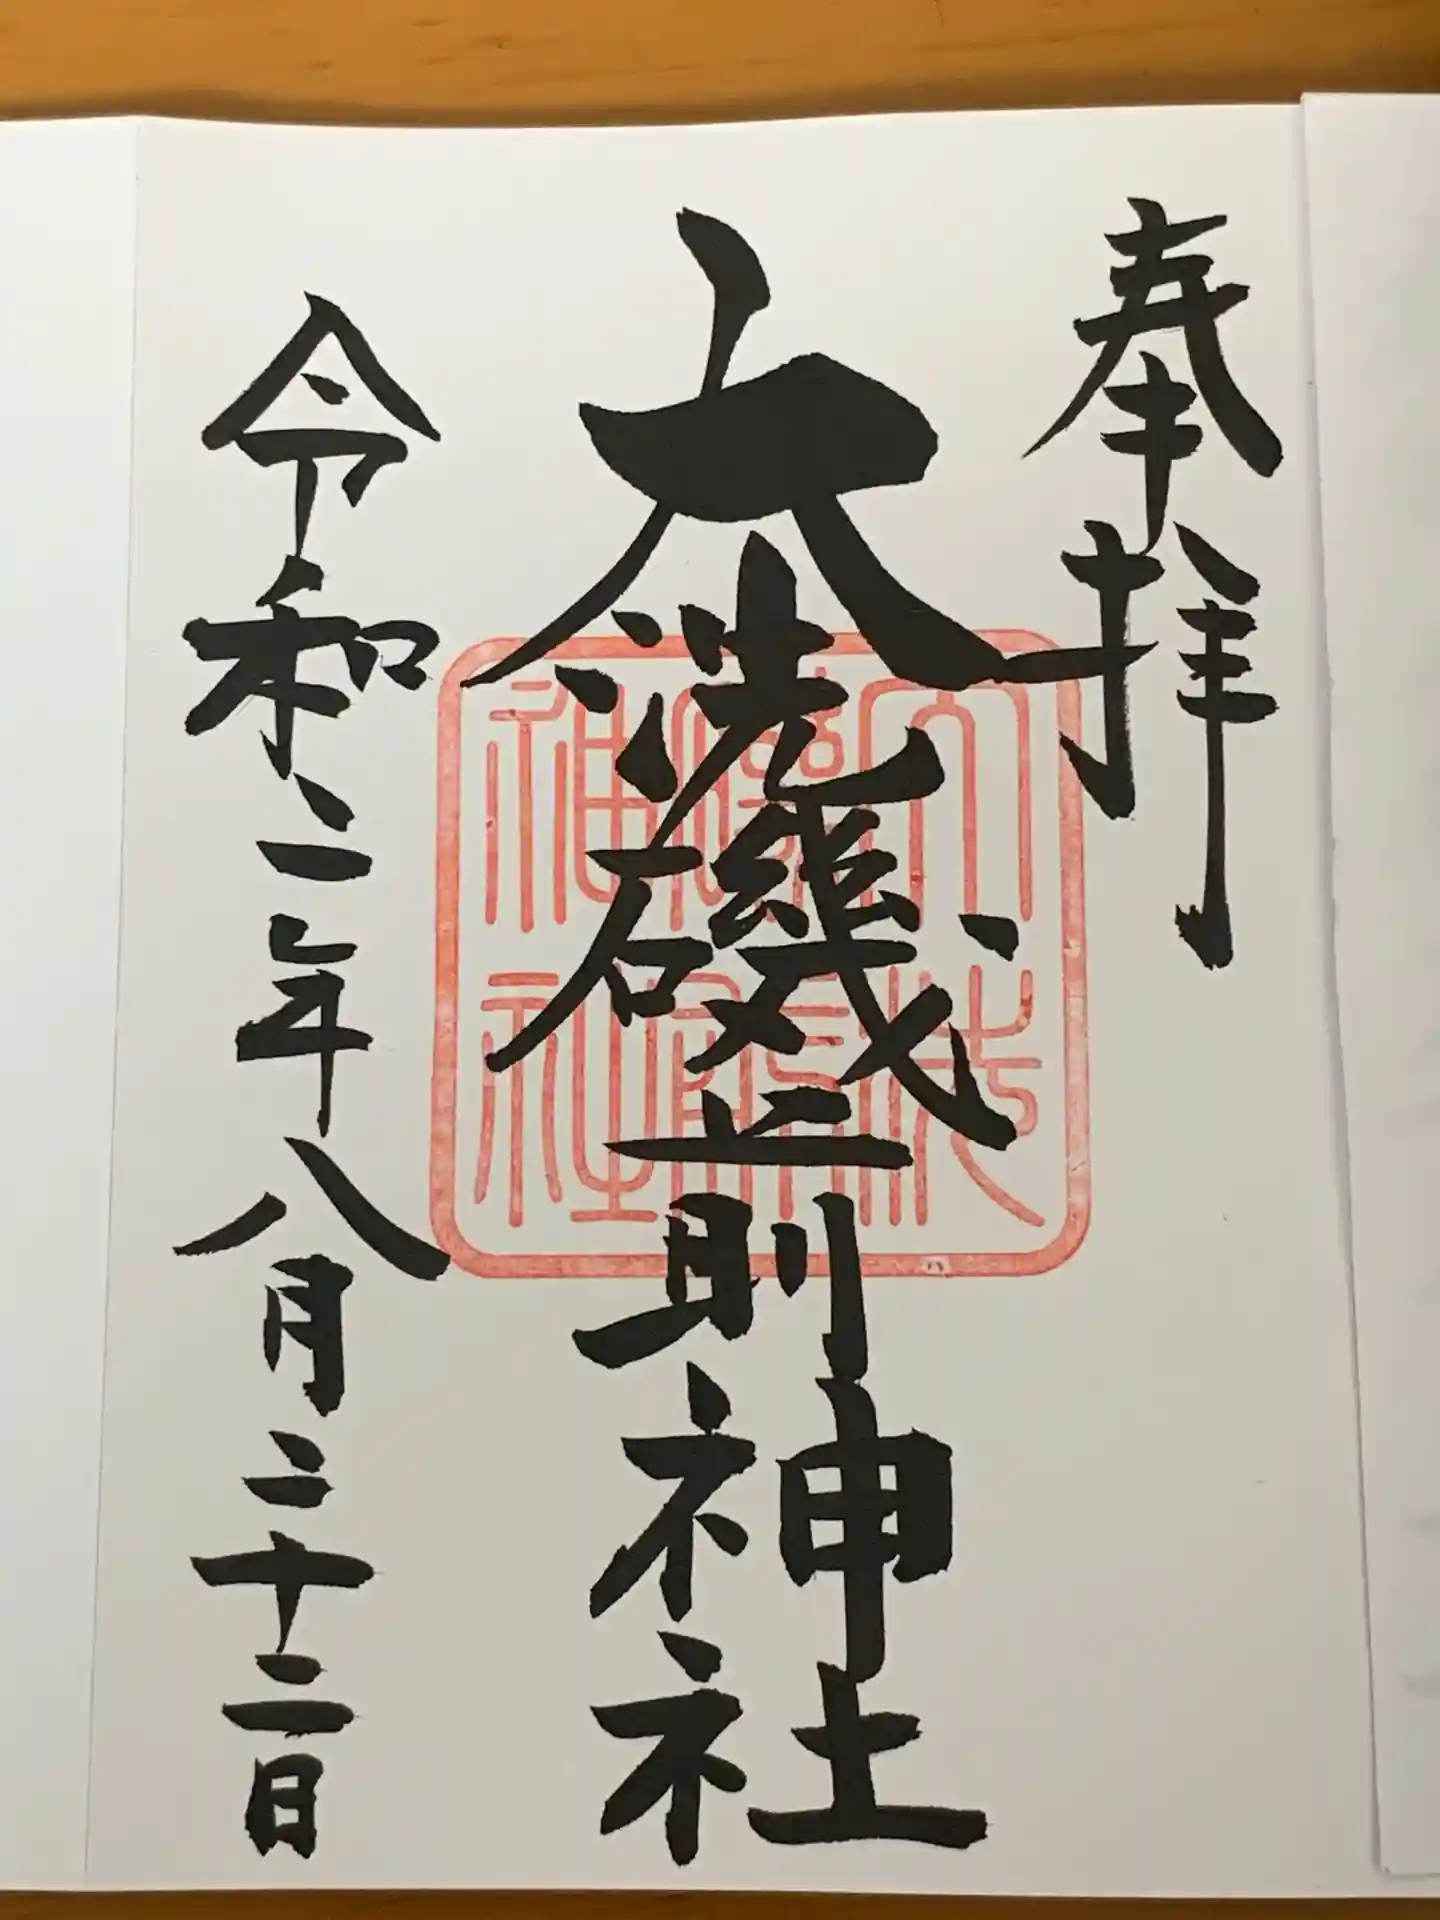 奉拝
大洗磯前神社
令和二年八月二十二日
大洗
磯前
神社